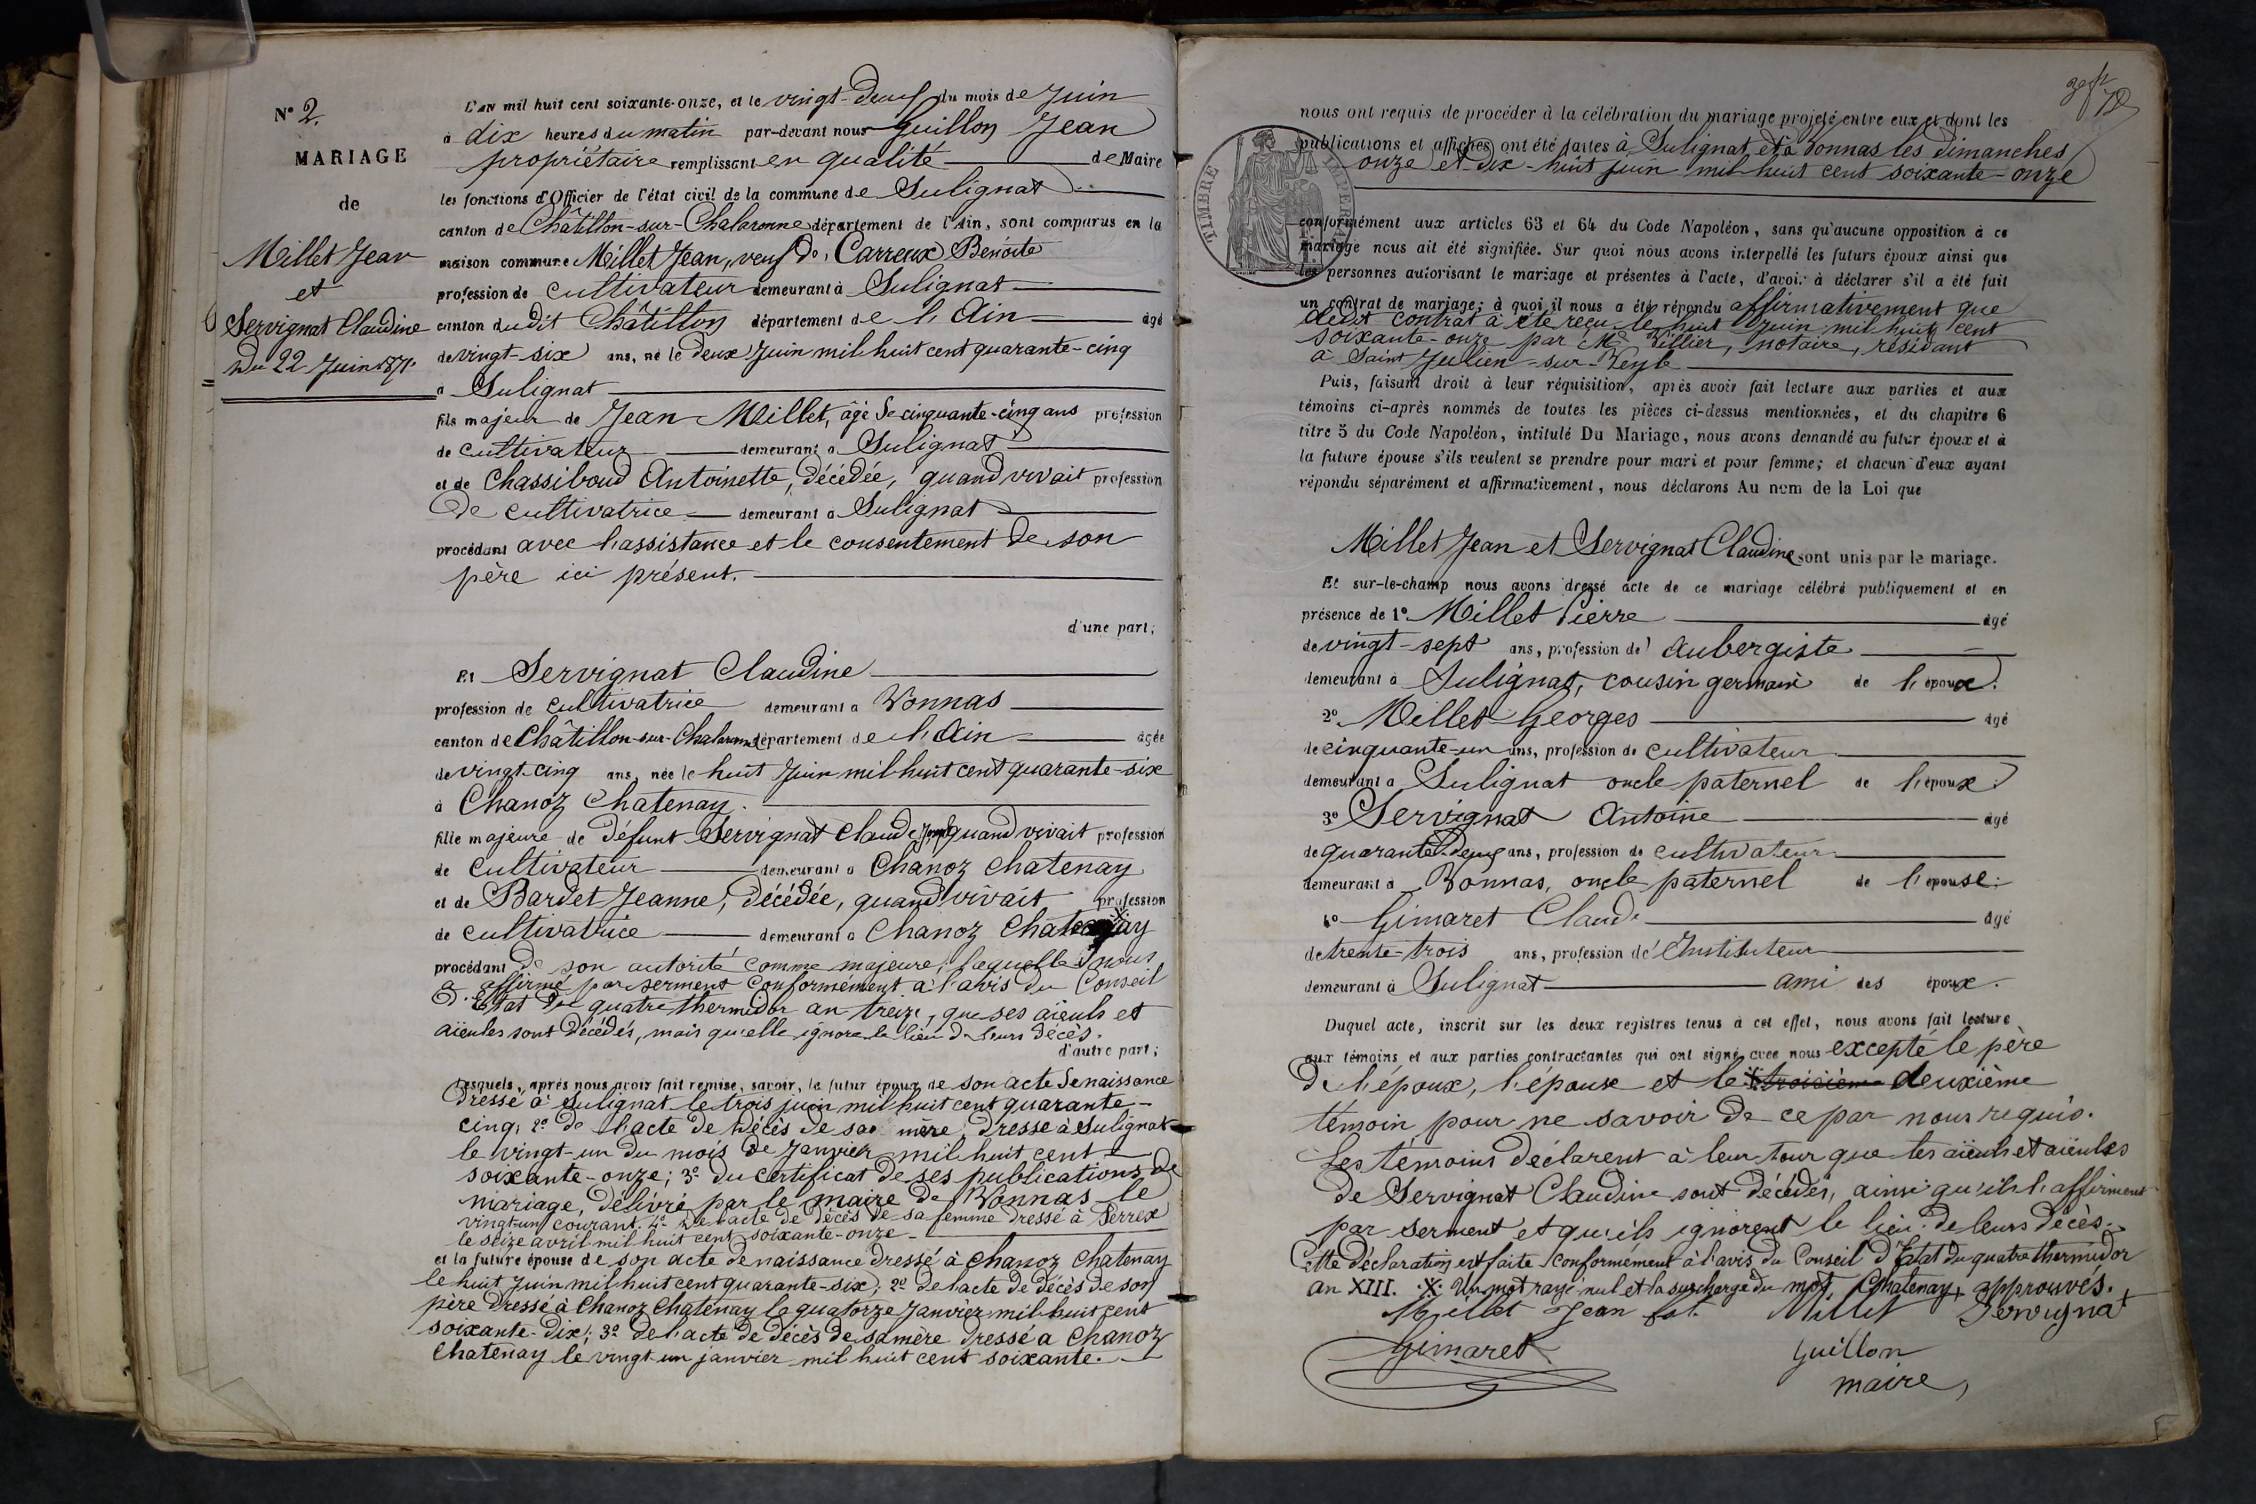 N° 2.
MARIAGE
de
Millet Jean
et
Servignat Claudine
Du 22 Juin 1871.
L'an mil huit cent soixante-onze, et le vingt-deux du mois de Juin
à dix heures du matin par-devant nous Guillon Jean
propriétaire remplissant en qualité de Maire
les fonctions d'Officier de l'état civil de la commune de Sulignat
canton de Châtillon-sur-Chalaronne département de l'Ain, sont comparus en la
maison commune Millet Jean, veuf de, Carreux Benoite
profession de cultivateur demeurant à Sulignat
canton dudit Châtillon département de l'Ain âgé
de vingt-six ans, né le deux Juin mil huit cent quarante-cinq
à Sulignat
fils majeur de Jean Millet, âgé de cinquante-cinq ans profession
de cultivateur demeurant à Sulignat
et de Chassiboud Antoinette, décédée, quand vivait profession
de cultivatrice demeurant à Sulignat
procédant avec l'assistance et le consentement de son
père ici présent.
d'une part;
Et Servignat Claudine
profession de cultivatrice demeurant à Vonnas
canton de Châtillon-sur-Chalaronne département de l'Ain âgée
de vingt-cinq ans, née le huit Juin mil huit cent quarante-six
à Chanoz Chatenay.
fille majeure de défunt Servignat Claude quand vivait profession
de cultivateur demeurant à Chanoz Chatenay
et de Bardet Jeanne, décédée, quand vivait profession
de cultivatrice demeurant à Chanoz Chatenay
procédant de son autorité comme majeure, laquelle nous
a affirmé par serment conformément à l'avis du Conseil
d'Etat du quatre thermidor an treize, que ses aïeuls et
aïeules sont décédés, mais qu'elle ignore le lieu de leurs décès.
d'autre part;
Lesquels, après nous avoir fait remise, savoir, le futur époux de son acte de naissance
dressé à Sulignat le trois juin mil huit cent quarante-
cinq; 2° de l'acte de décès de sa mère, dressé à Sulignat
le vingt-un du mois de Janvier mil huit cent
soixante-onze; 3° du certificat de ses publications de
mariage, délivré par le maire de Vonnas le
vingt-un courant. 4° De l'acte de décès de sa femme dressé à Perrex
le seize avril mil huit cent soixante-onze
et la future épouse de son acte de naissance dressé à Chanoz Chatenay
le huit Juin mil huit cent quarante-six; 2° de l'acte de décès de son
père dressé à Chanoz Chatenay le quatorze Janvier mil huit cent
soixante-dix; 3° de l'acte de décès de sa mère dressé à Chanoz
Chatenay le vingt-un janvier mil huit cent soixante.
TIMBRE IMPERIAL
nous ont requis de procéder à la célébration du mariage projeté entre eux et dont les
publications et affiches ont été faites à Sulignat et à Vonnas les Dimanches
onze et dix-huit juin mil huit cent soixante-onze
conformément aux articles 63 et 64 du Code Napoléon, sans qu'aucune opposition à ce
mariage nous ait été signifiée. Sur quoi nous avons interpellé les futurs époux ainsi que
les personnes autorisant le mariage et présentes à l'acte, d'avoir à déclarer s'il a été fait
un contrat de mariage; à quoi il nous a été répondu affirmativement que
ledit contrat à été reçu le huit Juin mil huit cent
soixante-onze par Me Villier, notaire, résidant
à Saint Julien-sur-Veyle
Puis, faisant droit à leur réquisition, après avoir fait lecture aux parties et aux
témoins ci-après nommés de toutes les pièces ci-dessus mentionnées, et du chapitre 6
titre 5 du Code Napoléon, intitulé Du Mariage, nous avons demandé au futur époux et à
la future épouse s'ils veulent se prendre pour mari et pour femme; et chacun d'eux ayant
répondu séparément et affirmativement, nous déclarons Au nom de la Loi que
Millet Jean et Servignat Claudine sont unis par le mariage.
Et sur-le-champ nous avons dressé acte de ce mariage célébré publiquement et en
présence de 1° Millet Pierre âgé
de vingt-sept ans, profession de Aubergiste
demeurant à Sulignat, cousin germain de l'époux.
2° Millet Georges âgé
de cinquante-un ans, profession de cultivateur
demeurant à Sulignat oncle paternel de l'époux.
3° Servignat Antoine âgé
de quarante-deux ans, profession de cultivateur
demeurant à Vonnas, oncle paternel de l'épouse.
4° Gimaret Claude âgé
de trente-trois ans, profession d'Instituteur
demeurant à Sulignat ami des époux.
Duquel acte, inscrit sur les deux registres tenus à cet effet, nous avons fait lecture
aux témoins et aux parties contractantes qui ont signé avec nous excepté le père
de l'époux, l'épouse et le troisième deuxième
témoin pour ne savoir de ce par nous requis.
Les témoins déclarent à leur tour que les aïeuls et aïeules
de Servignat Claudine sont décédés, ainsi qu'ils l'affirment
par serment et qu'ils ignorent le lieu de leurs décès.
Cette déclaration est faite conformément à l'avis du Conseil d'Etat du quatre thermidor
an XIII. Un mot rayé nul et la surcharge du mot Chatenay approuvés.
Millet Jean Millet Servignat
Gimaret Guillon
maire